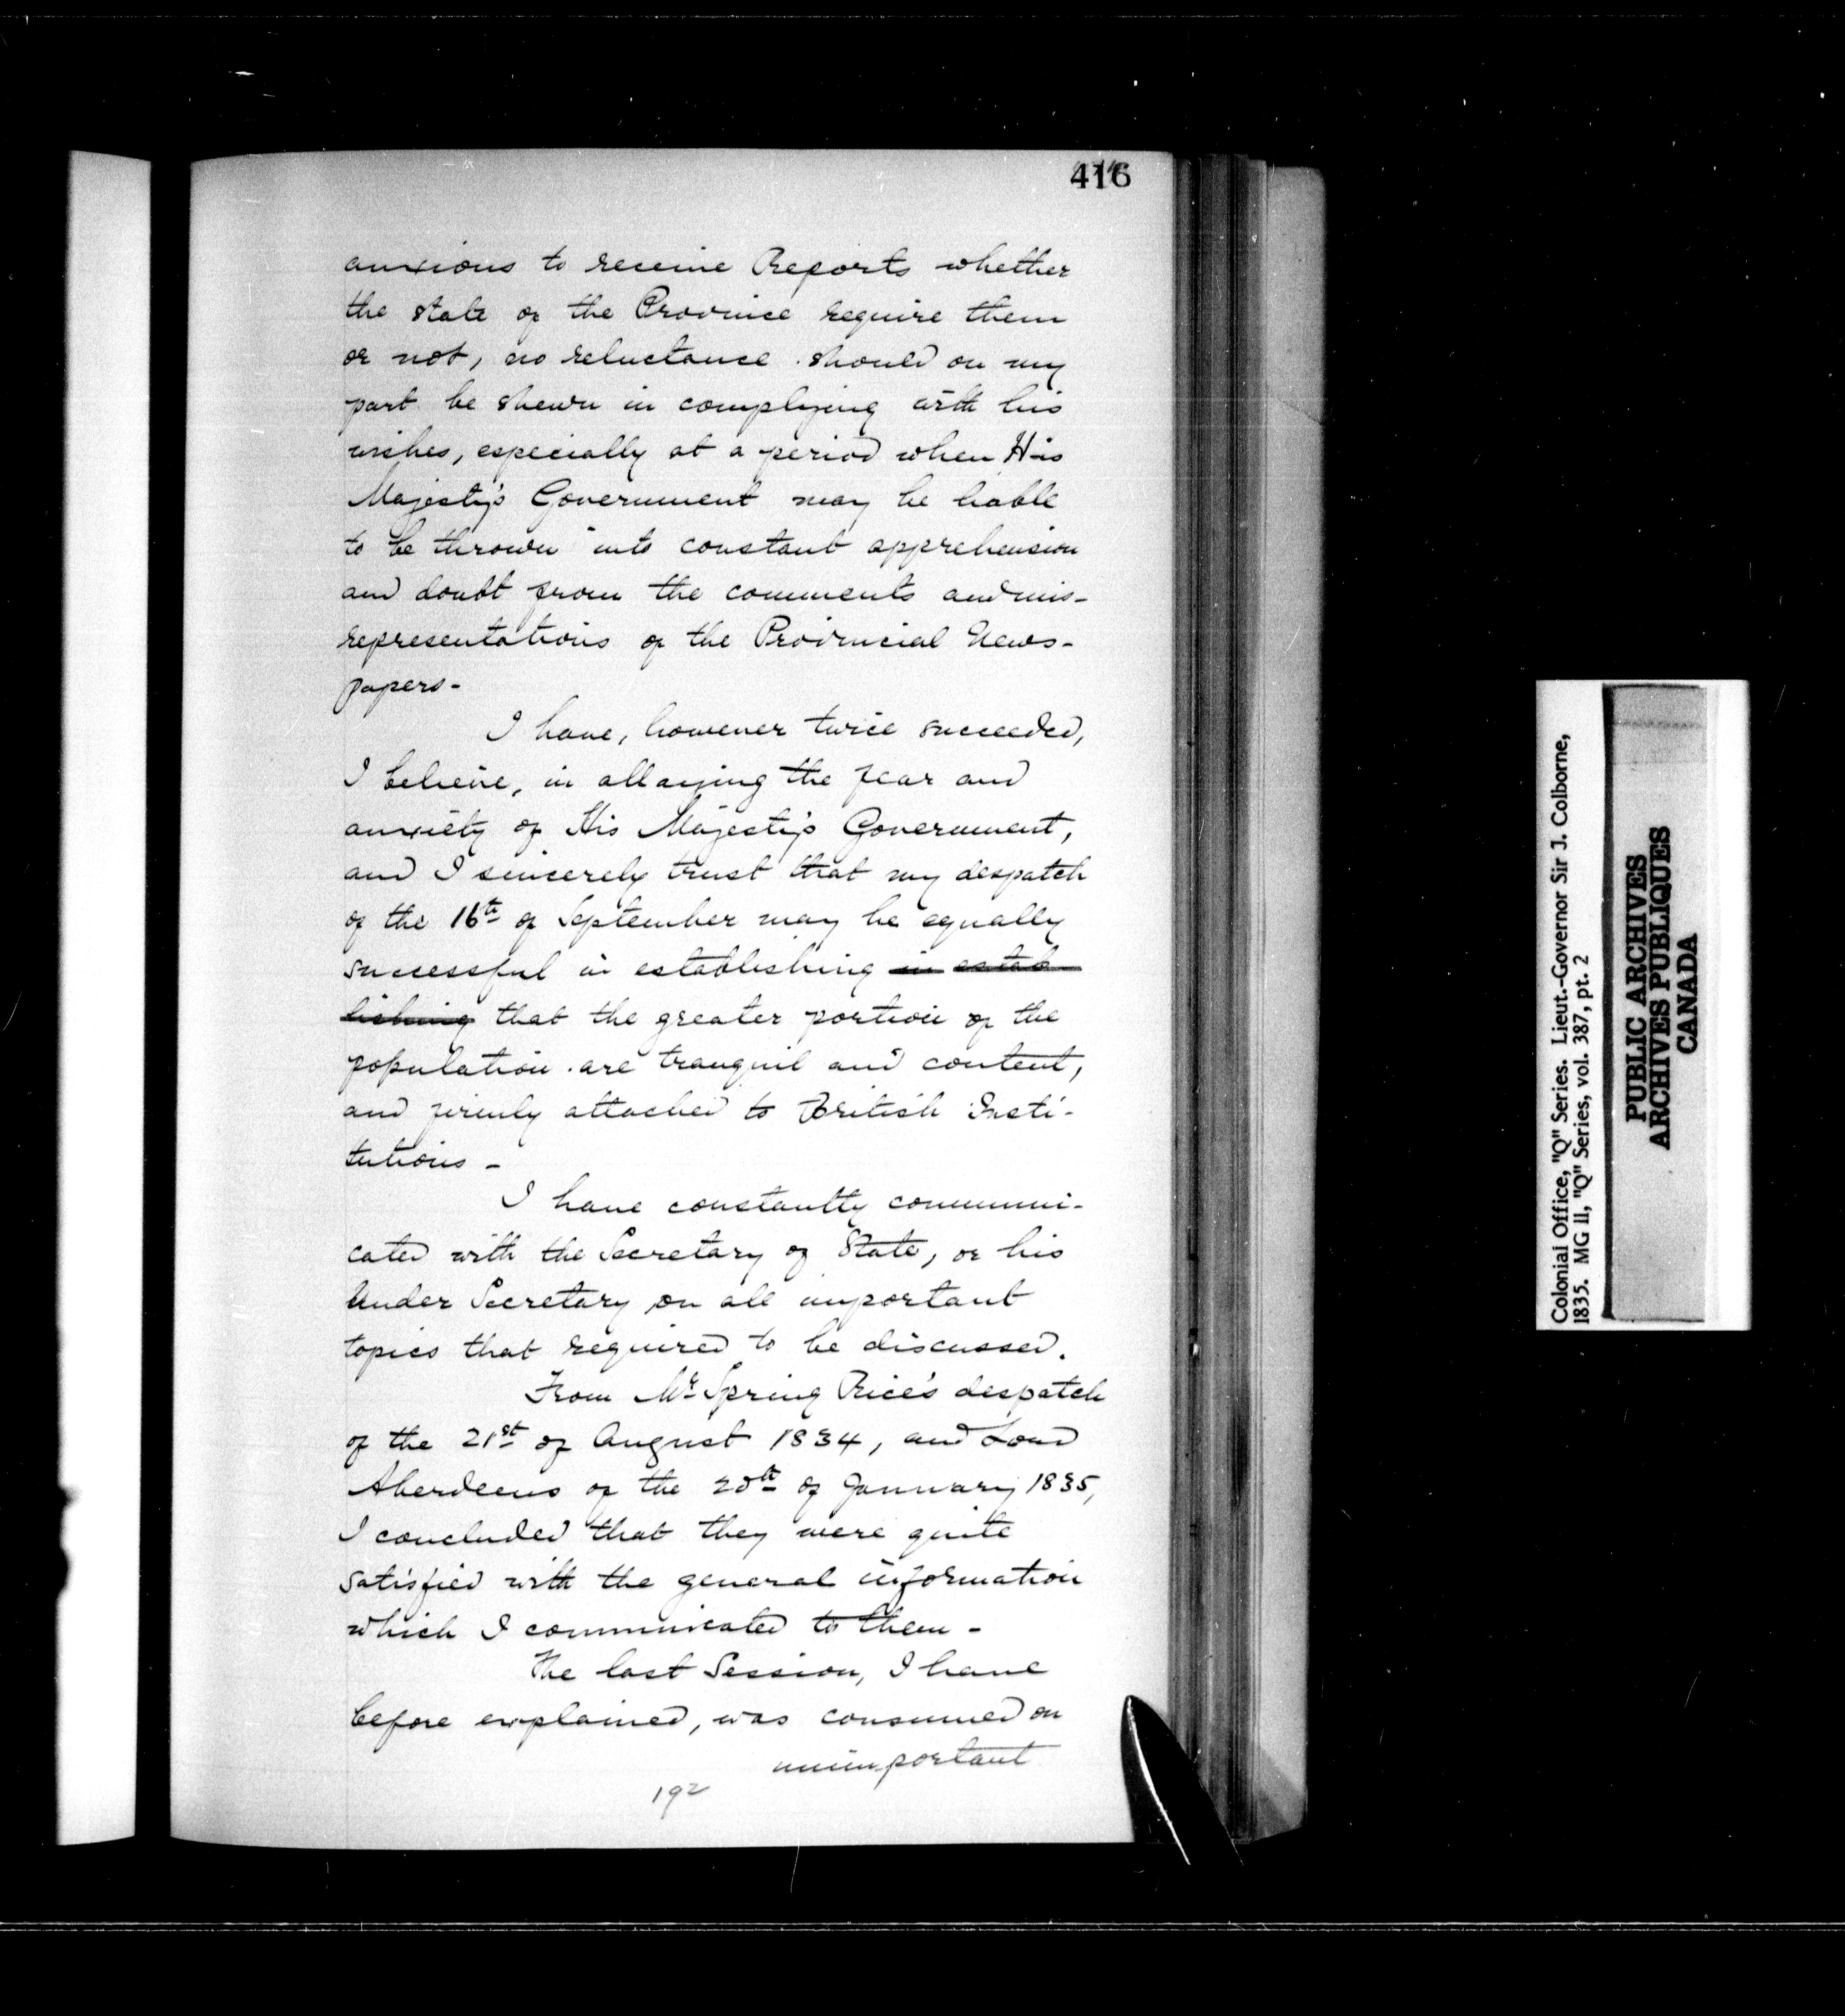 416
anxious to receive Reports whether
the state of the Province require them
or not, no reluctance should on my
part be shewn in complying with his
wishes, especially at a period when His
Majesty's Government may be liable
to be thrown into constant apprehension
and doubt from the comments and mis-
representations of the Provincial News-
papers-
I have, however twice succeeded,
I believe, in allaying the fear and
anxiety of His Majesty's Government,
and I sincerely trust that my despatch
of the 16th of September may be equally
successful in establishing in estab
lishing that the greater portion of the
population are tranquil and content,
and firmly attached to British Insti-
tutions -
I have constantly communi-
cated with the Secretary of State, or his
Under Secretary on all important
topics that required to be discussed.
From Mr Spring Rice's despatch
of the 21st of August 1834, and Lord
Aberdeens of the 20th of January 1835,
I concluded that they were quite
satisfied with the general information
which I communicated to them -
The last Session, I have
before explained, was consumed on
unimportant
192
Colonial Office, "Q" Series. Lieut.-Governor Sir J. Colborne,
1835. MG 11, "Q" Series, vol. 387, pt. 2
PUBLIC ARCHIVES
ARCHIVES PUBLIQUES
CANADA